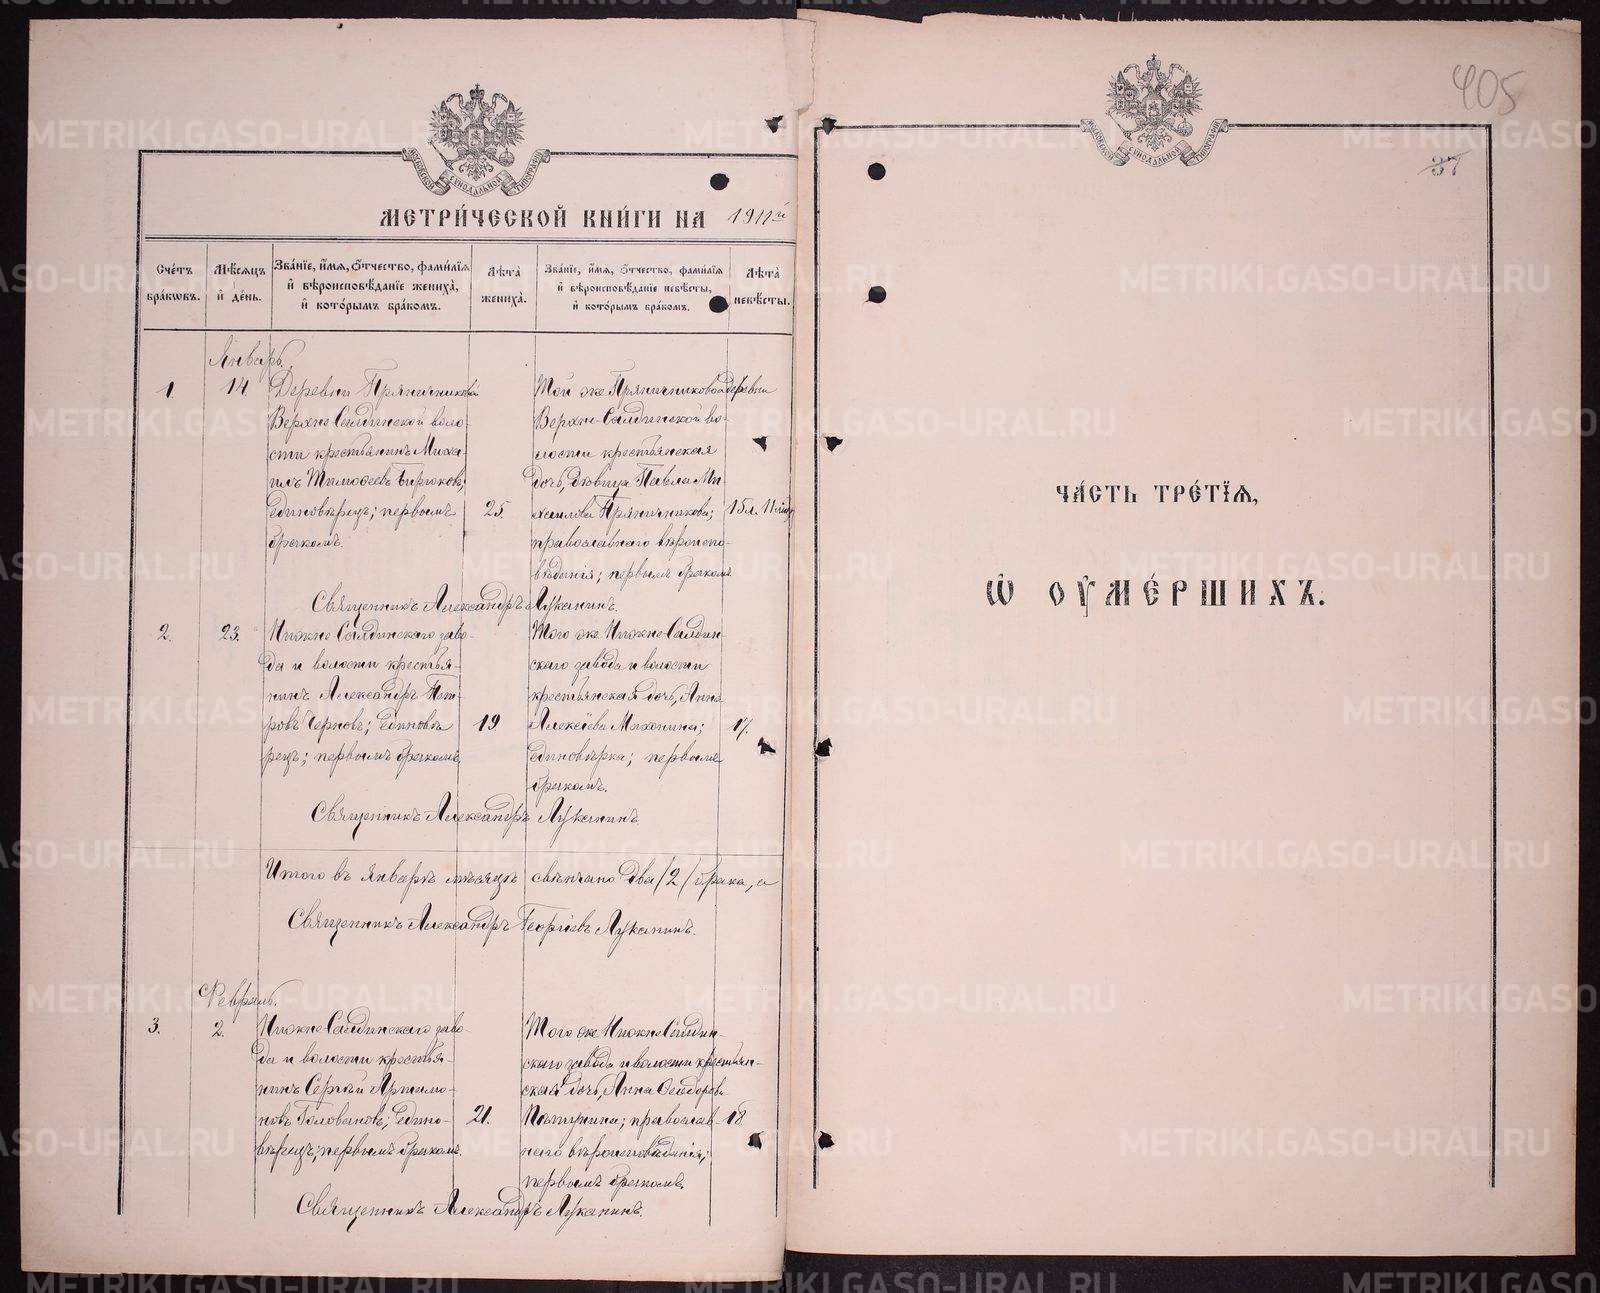 МЕТРИ́ЧЕСКОЙ КНИ́ГИ НА 1911й
Сче́тъ бра́кѡвъ.
Мѣ́сяцъ и҆ де́нь.
Зва́нїе, и҆́мѧ, ѻ҆́тчество, фами́лїѧ и҆ вѣроисповѣ́данїе жениха̀, и҆ кото́рымъ бра́комъ.
Лѣ́та жениха̀.
Зва́нїе, и҆́мѧ, ѻ҆́тчество, фами́лїѧ и҆ вѣроисповѣ́данїе невѣ́сты, и҆ кото́рымъ бра́комъ.
Лѣ́та невѣ́сты.
Январь.
1.
14.
Деревни Пряничниковой
Верхне-Салдинской воло-
сти крестьянинъ Миха-
илъ Тимоѳеевъ Бирюковъ;
единовѣрецъ; первымъ
бракомъ.
25.
Той же Пряничниковой деревни
Верхне-Салдинской во-
лости крестьянская
дочь, дѣвица Павла Ми-
хаилова Пряничникова;
православнаго вѣроиспо-
вѣданія; первымъ бракомъ
15л. 11
Священникъ Александръ Луканинъ.
2.
23.
Нижне-Салдинскаго заво-
да и волости крестья-
нинъ Александръ Пет-
ровъ Черновъ; единовѣ
рецъ; первымъ бракомъ
19
Того же Нижне-Салдин-
скаго завода и волости
крестьянская дочь, Анна
Алексѣева Махонина;
единовѣрка; первымъ
бракомъ.
17.
Священникъ Александръ Луканинъ
Итого въ январѣ мѣсяцѣ свѣнчано два /2/ брака,
Священникъ Александръ Георгіевъ Луканинъ.
Февраль.
3.
2.
Нижне-Салдинскаго заво-
да и волости крестья-
нинъ Сергѣй Артамо-
новъ Головановъ; едино-
вѣрецъ; первымъ бракомъ.
21.
Того же Нижне-Салдин-
скаго завода и волости крестьян-
ская дочь, Анна Ѳеодорова
православ-
наго вѣроисповѣданія;
первымъ бракомъ.
18
Священникъ Александръ Луканинъ.
405
37
ЧА́СТЬ ТРЕ́ТЇѦ,
Ѡ҆ ОУ҆МЕ́РШИХЪ.
МОСКОВСКОЙ СУНОДАЛЬНОЙ ТИПОГРАФІИ
METRIKI.GASO-URAL.RU